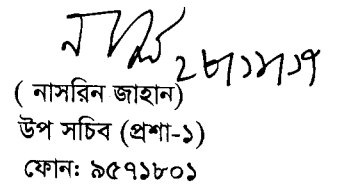 ( নাসরিন জাহান)
উপ সচিব (প্রশা-১)
ফোন: ৯৫৭১৮০১